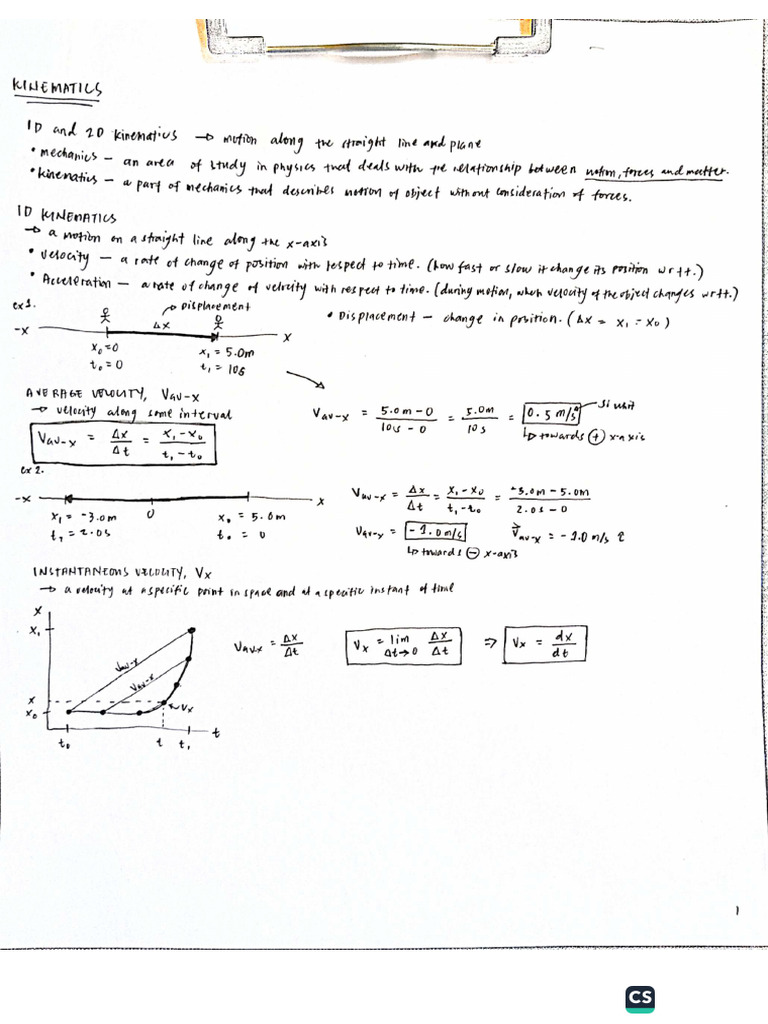 KINEMATICS
1D and 2D kinematics → motion along the straight line and plane
• mechanics – an area of study in physics that deals with the relationship between motion, forces and matter.
• kinematics – a part of mechanics that describes motion of object without consideration of forces.
1D KINEMATICS
→ a motion on a straight line along the x-axis
• velocity – a rate of change of position with respect to time. (how fast or slow it change its position wrtt.)
• Acceleration – a rate of change of velocity with respect to time. (during motion, when velocity of the object changes wrtt.)
ex 1.
→ Displacement
• Displacement – change in position. (Δx = x₁ - x₀)
-x Δx x
x₀ = 0 x₁ = 5.0m
t₀ = 0 t₁ = 10s
AVERAGE VELOCITY, Vav-x
→ velocity along some interval
Vav-x = Δx/Δt = x₁-x₀/t₁-t₀
Vav-x = 5.0m-0/10s-0 = 5.0m/10s = 0.5 m/s
SI unit
↳ towards (+) x-axis
ex 2.
-x 0 x
x₁ = -3.0m x₀ = 5.0m
t₁ = 2.0s t₀ = 0
Vav-x = Δx/Δt = x₁-x₀/t₁-t₀ = -3.0m-5.0m/2.0s-0
Vav-x = -1.0m/s V⃗av-x = -1.0m/s î
↳ towards (-) x-axis
INSTANTANEOUS VELOCITY, Vx
→ a velocity at a specific point in space and at a specific instant of time
x
x₁
Vav-x
Vav-x
x
x₀
Vx
t₀ t t₁ t
Vav-x = Δx/Δt Vx = lim Δt→0 Δx/Δt ⇒ Vx = dx/dt
1
CS